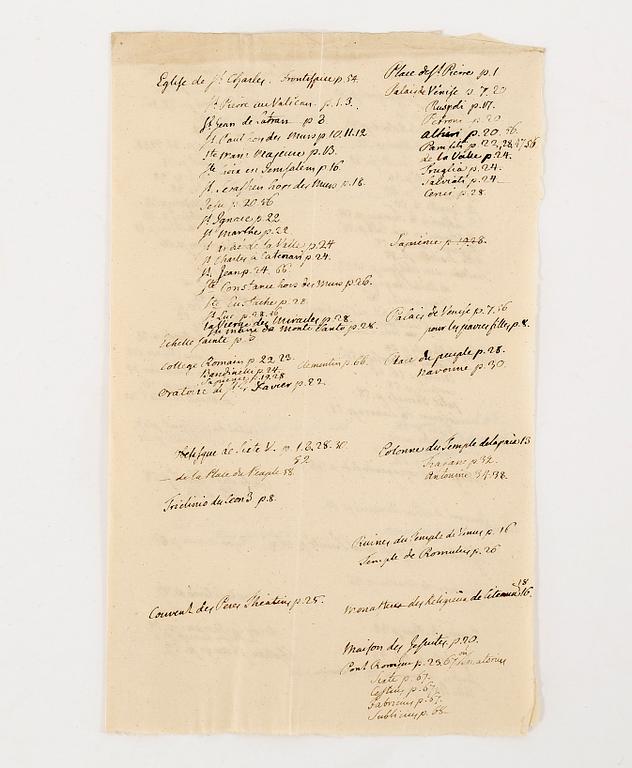 Eglise de St Charles. frontispice p. 54.
St Pierre au Vatican. p. 1. 3.
St Jean de Latran p 8
St Paul hors des Murs p 10, 11. 12
Ste Marie Majeure p. 13.
Ste Croix en Jerusalem p 16.
St Sebastien hors des Murs p. 18.
Jesu p. 20. 56
St Ignace p. 22
St Marthe p. 22
St André de la Valle p. 24
St Charles a Catenari p 24.
St Jean p. 24. 66.
Ste Constance hors des Murs p 26.
Ste Eustache p. 28
St Luc p. 28. 56
la Vierge des Miracles p. 28
Ste Marie du Monte Santo p. 28.
Echelle Sainte p. 8
College Romain p 22. 23. Clementin p. 66.
Bandinelli p. 24
Sapience p. 19. 28
Oratoire de St Xavier p. 22.
Obelisque de Sixte V. p. 1. 8. 28. 30.
52
— de la Place du Peuple 58
Triclinio du Leon 3 p. 8.
Couvent des Peres Theatins p. 25.
Place de St Pierre p. 1
Palais de Vénise p. 7. 20
Ruspoli p. 17.
Petroni p. 20
altieri p. 20. 56.
Pamfili p. 22, 28. 47. 56
de la Valle p. 24.
Truglia p. 24.
Salviati p. 24
Cenci p. 28.
Sapience p. 19 28.
Palais de Venise p. 7. 56
pour les pauvres filles p. 8.
Place du peuple p. 28.
Navonne p. 30.
Colonne du Temple de la paix 13
Trajane p 32.
Antonine 34. 38.
Ruines du Temple de Venus p. 16
Temple de Romulus p. 26
18
Monastere des Religieux de Citeaux 16.
Maison des Jesuites p. 20.
Pont Romain p. 23. 67 ou Senatorius
Sixte p. 67.
Cestius p. 67.
Fabricius p. 67.
Sublicius p. 68.